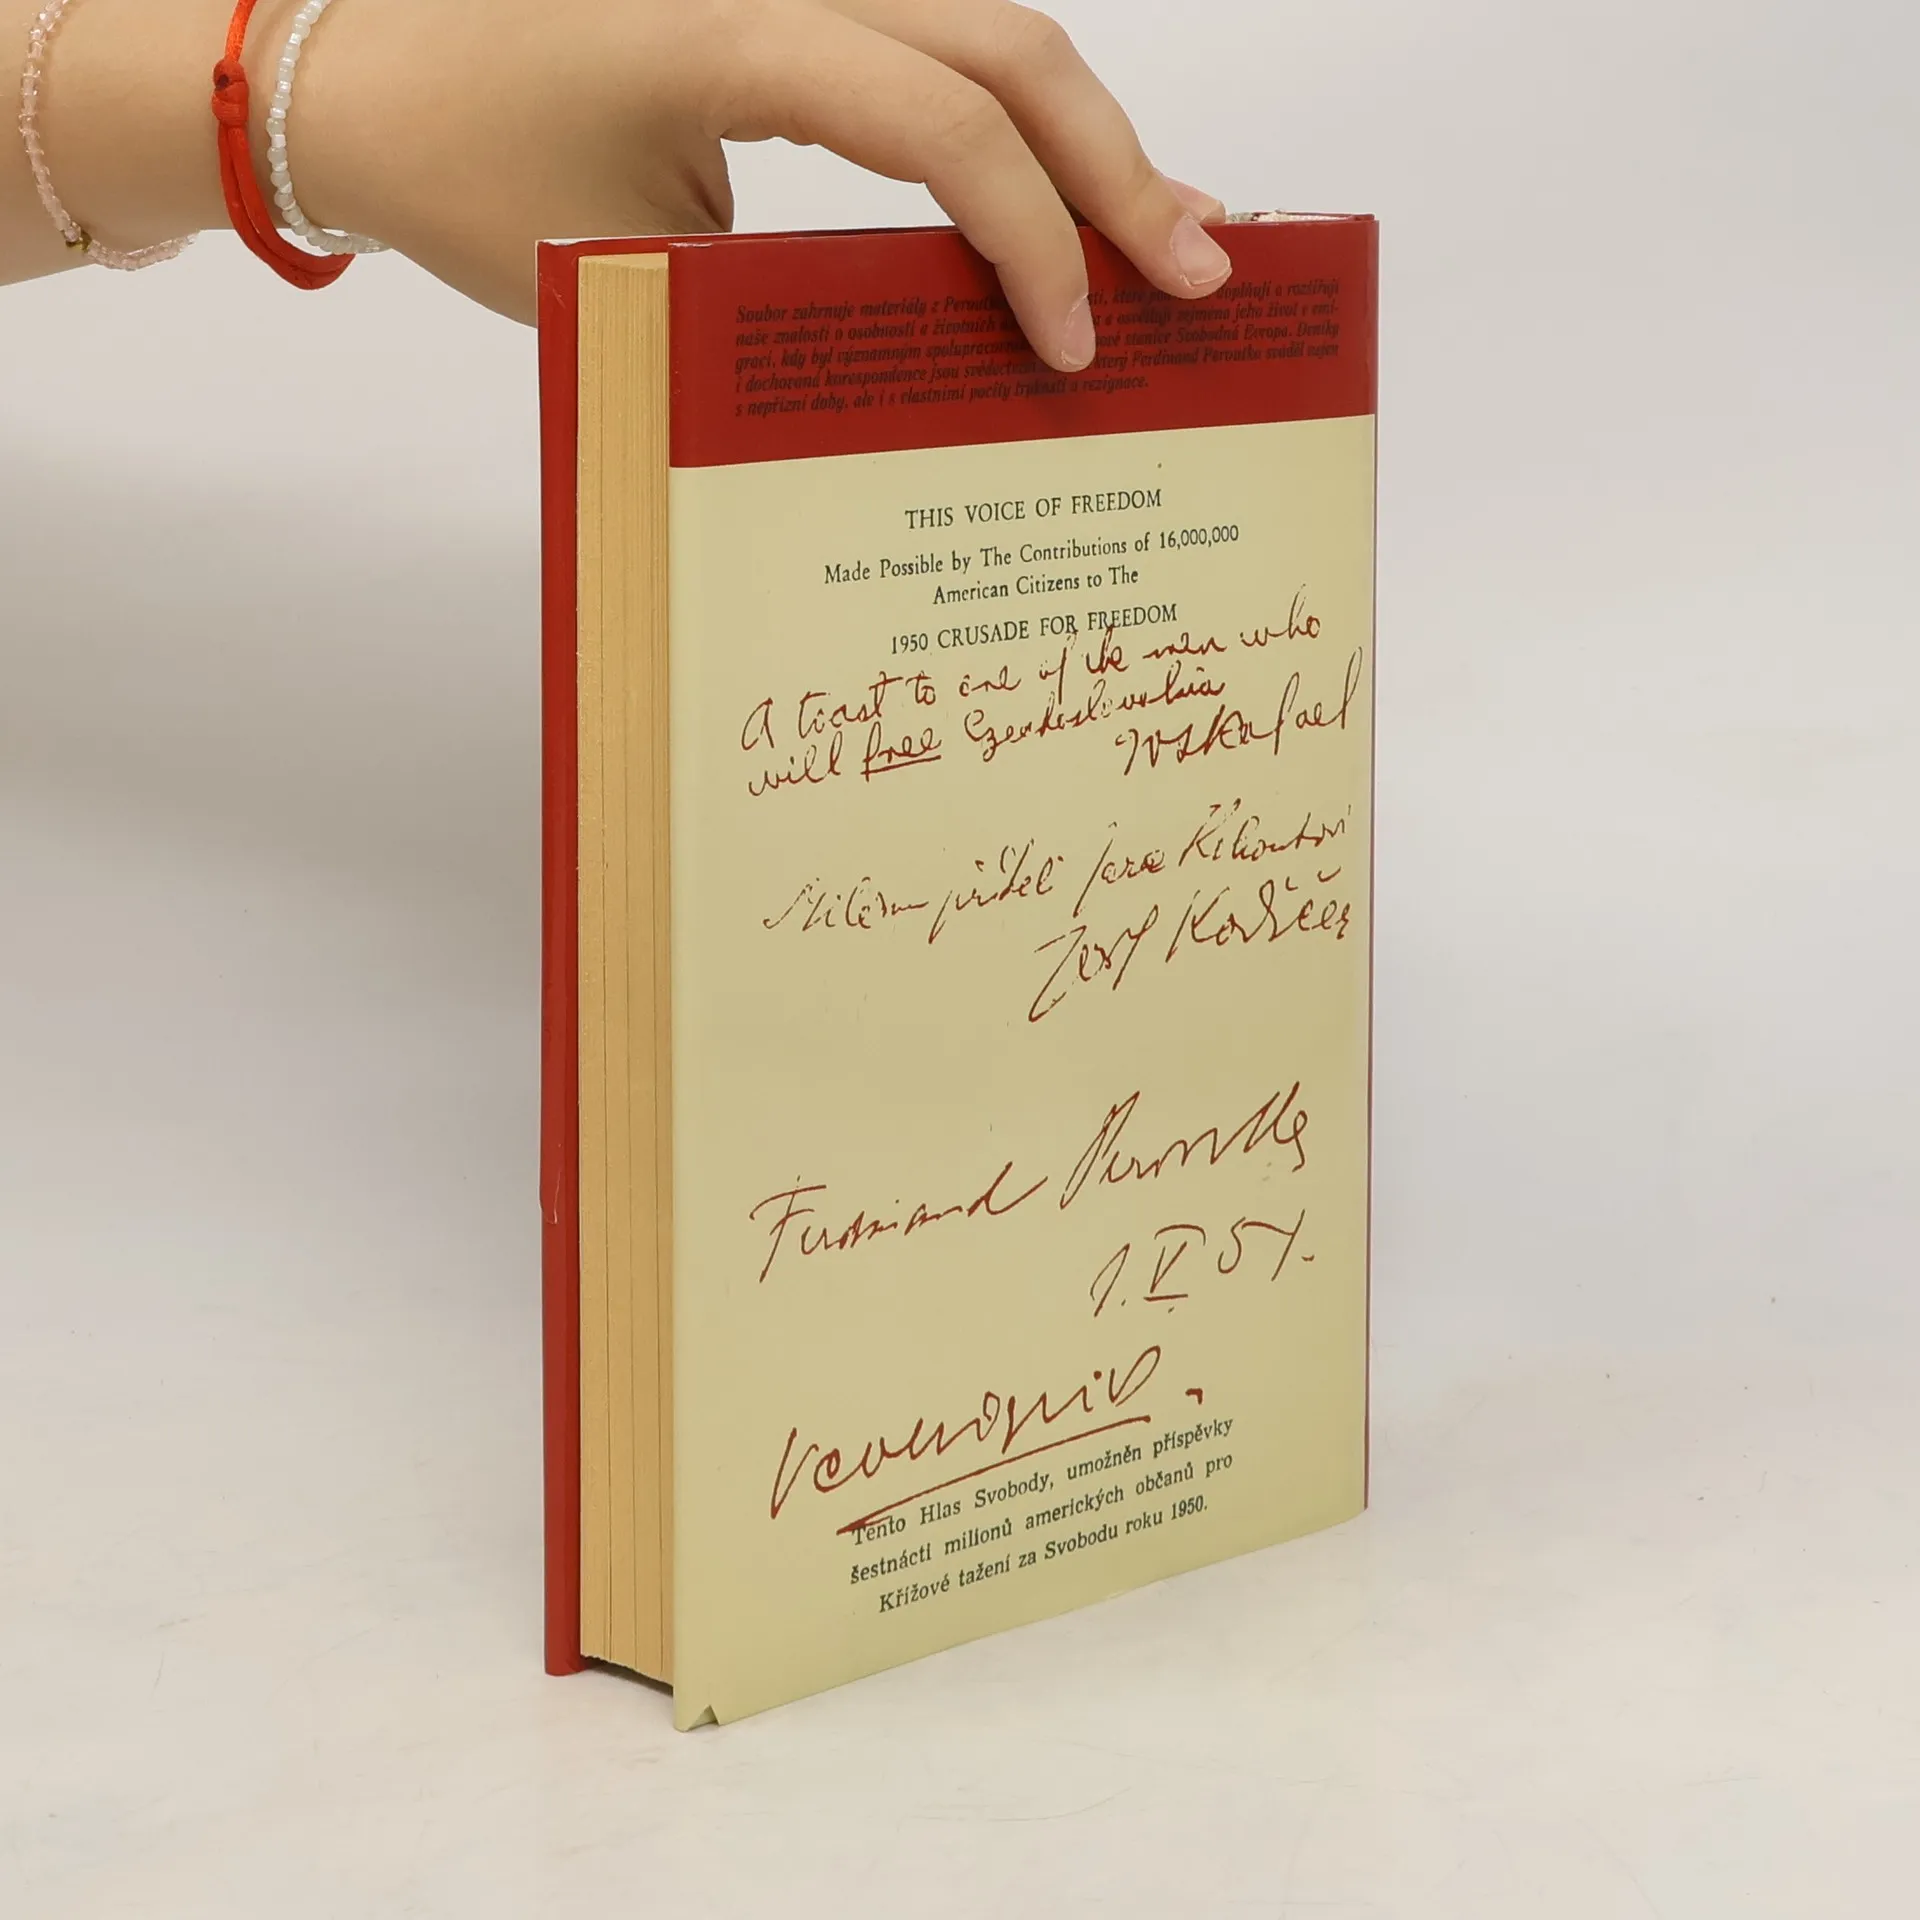 Soubor zahrnuje materiály z ktoré doplňují a rozšiřují
naše znalosti o osobnosti a životních a a osvětlují zejména jeho život v emi-
graci, kdy byl významným stanice Svobodná Evropa. Deníky
i dochovaná korespondence jsou který Ferdinand Peroutka sváděl nejen
s nepřízní doby, ale i s vlastními pocity a rezignace.
THIS VOICE OF FREEDOM
Made Possible by The Contributions of 16,000,000
American Citizens to The
1950 CRUSADE FOR FREEDOM
A toast to one of the men who
will free Czechoslovakia
Milému příteli
Josef
Ferdinand Peroutka
1. V 51.
Tento Hlas Svobody, umožněn příspěvky
šestnácti milionů amerických občanů pro
Křížové tažení za Svobodu roku 1950.